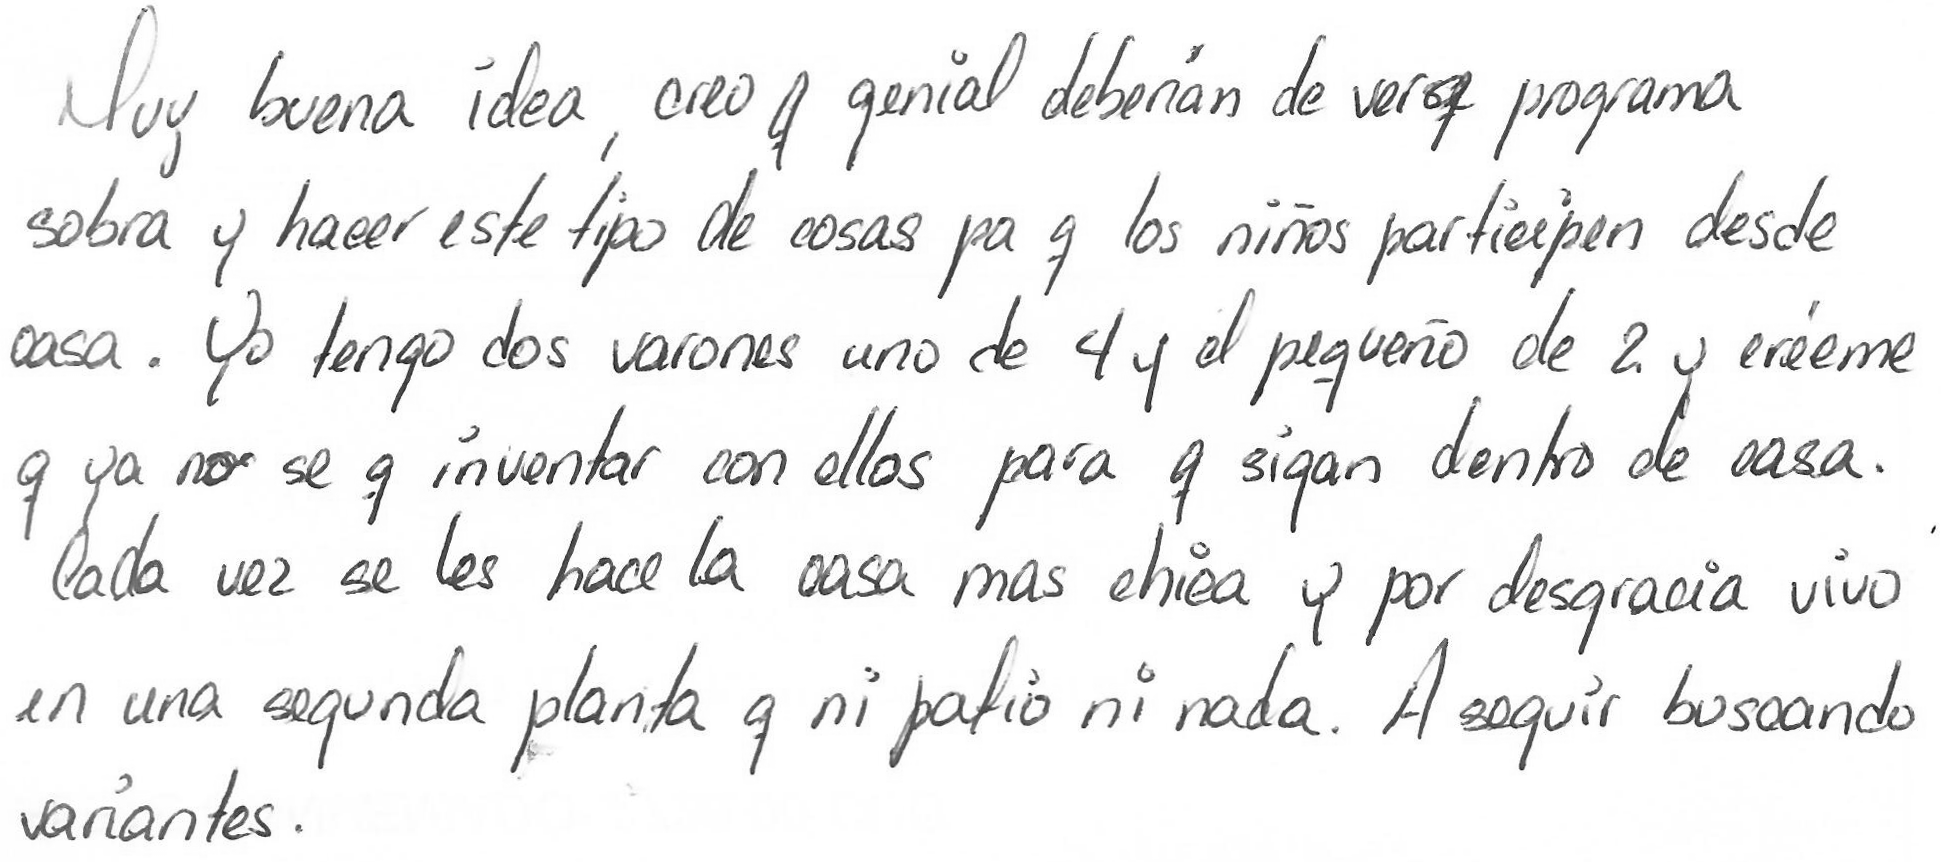 Muy buena idea, creo q genial deberían de ver q programa
sobra y hacer este tipo de cosas pa q los niños participen desde
casa. Yo tengo dos varones uno de 4 y el pequeño de 2 y créeme
q ya no se q inventar con ellos para q sigan dentro de casa.
Cada vez se les hace la casa mas chica y por desgracia vivo
en una segunda planta q ni patio ni nada. A seguir buscando
variantes.